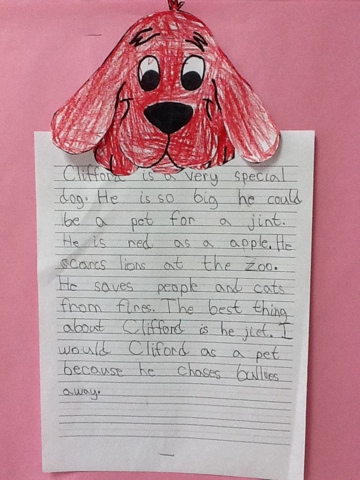 Clifford is a very special
dog. He is so big he could
be a pet for a jint.
He is red as a apple. He
scares lions at the zoo.
He saves people and cats
from fires. The best thing
about Clifford is he . I
would Cliford as a pet
because he chases bullies
away.